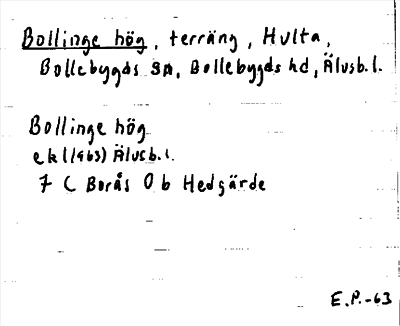 Bollinge hög, terräng, Hulta,
Bollebygds sn, Bollebygds hd, Älvsb.l.
Bollinge hög
ekl (1963) Älvsb.l.
7 C Borås 0 b Hedgärde
E.P.-63